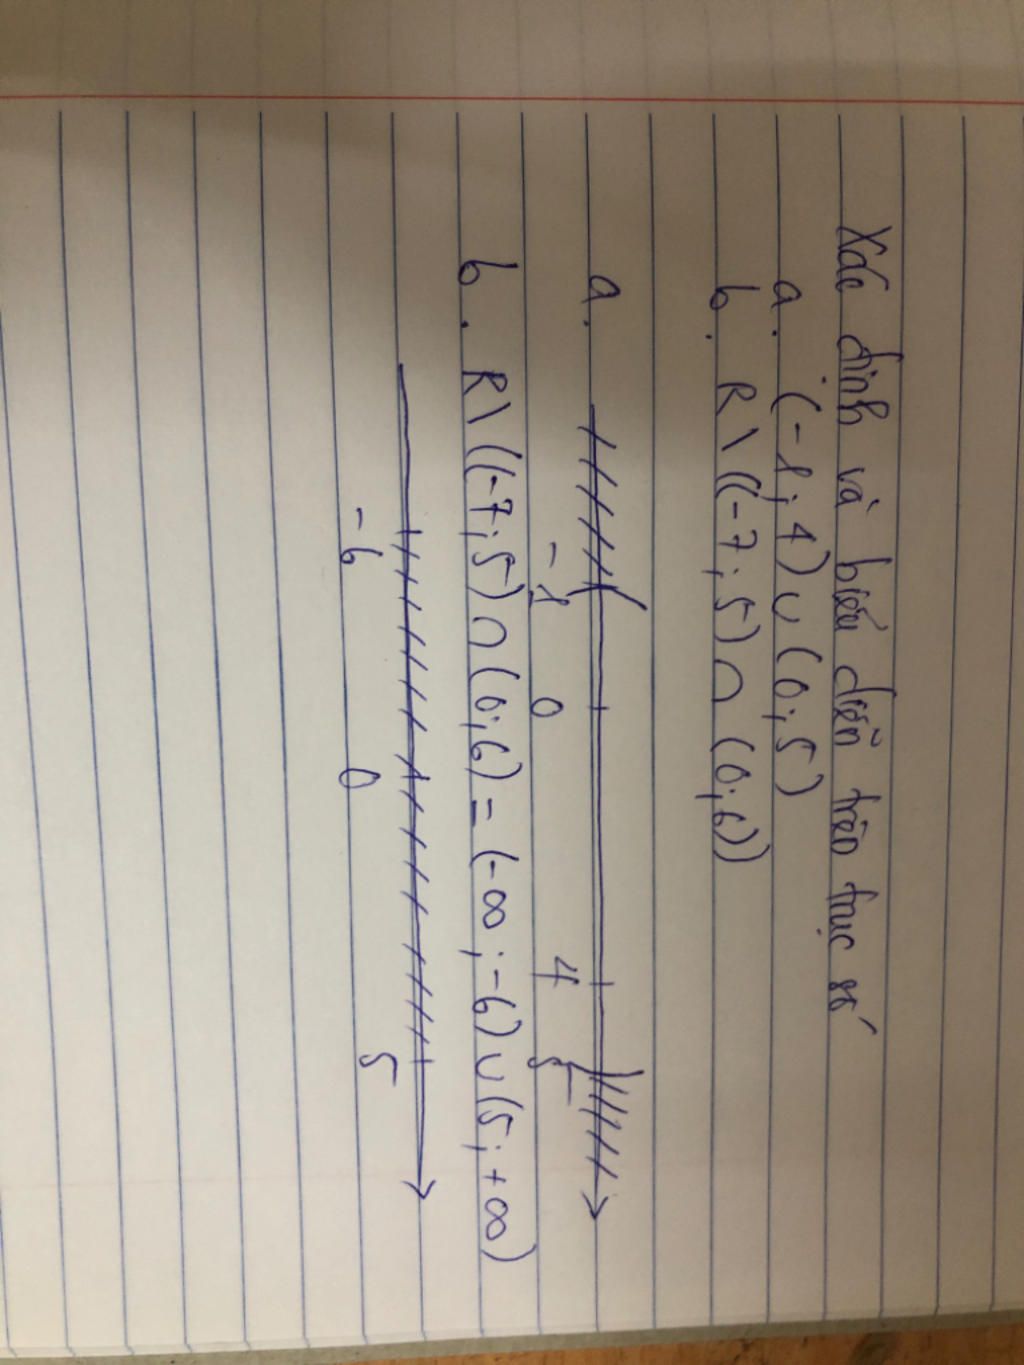 Xác định và biểu diễn trên trục số
a. (-1; 4) ∪ (0; 5)
b. R \ ((-7; 5) ∩ (0; 6))
a.
-1 0 4 5
b. R \ ((-7; 5) ∩ (0; 6) = (-∞; -6) ∪ (5; +∞)
-6 0 5